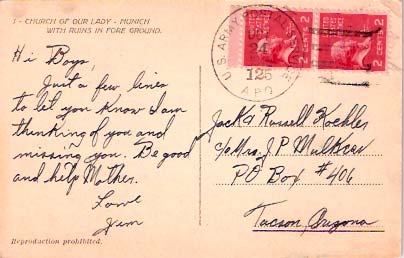 1 - CHURCH OF OUR LADY - MUNICH
WITH RUINS IN FORE GROUND.
Hi Boys,
Just a few lines
to let you know I am
thinking of you and
missing you. Be good
and help Mother.
Love
Jim
Reproduction prohibited.
U.S. ARMY POSTAL
24
125
A.P.O.
2 CENTS 2
2 CENTS 2
Jack & Russell Kochler
c/o Mrs. J.P.
PO Box #406
Tucson, Arizona